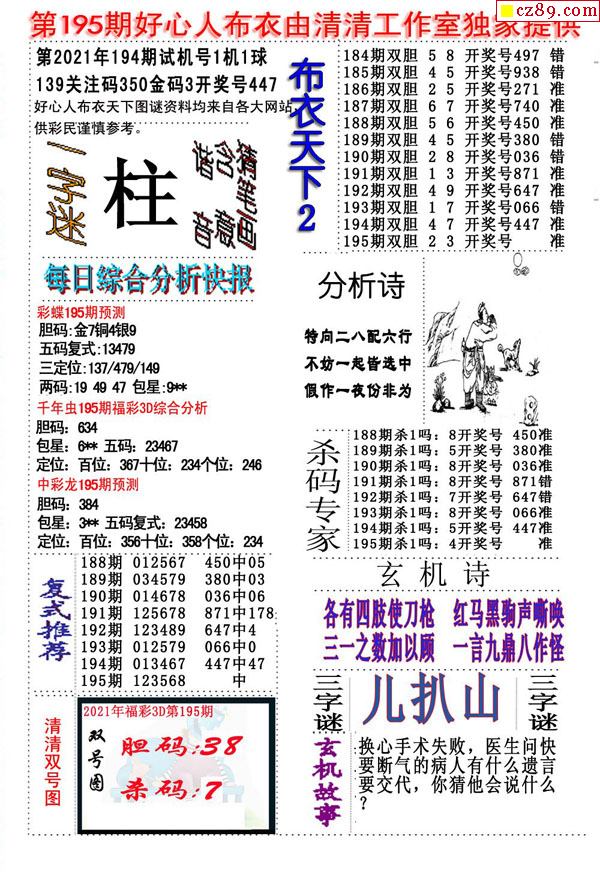 cz89.com
第195期好心人布衣由清清工作室独家提供
第2021年194期试机号1机1球
139关注码350金码3开奖号447
好心人布衣天下图谜资料均来自各大网站,
供彩民谨慎参考。
一字迷
柱
谐音
含意
猜笔画
布衣天下2
184期双胆 5 8 开奖号497 错
185期双胆 4 5 开奖号938 错
186期双胆 2 5 开奖号271 准
187期双胆 6 7 开奖号740 准
188期双胆 5 6 开奖号450 准
189期双胆 4 5 开奖号380 错
190期双胆 2 8 开奖号036 错
191期双胆 1 3 开奖号871 准
192期双胆 4 9 开奖号647 准
193期双胆 1 7 开奖号066 错
194期双胆 4 7 开奖号447 准
195期双胆 2 3 开奖号 准
每日综合分析快报
彩蝶195期预测
胆码:金7铜4银9
五码复式:13479
三定位:137/479/149
两码:19 49 47 包星:9**
千年虫195期福彩3D综合分析
胆码: 634
包星: 6** 五码: 23467
定位: 百位: 367十位: 234个位: 246
中彩龙195期预测
胆码: 384
包星: 3** 五码复式: 23458
定位: 百位: 356十位: 358个位: 234
分析诗
特向二八配六行
不妨一起皆选中
假作一夜份非为
杀码专家
188期杀1吗: 8开奖号 450准
189期杀1吗: 5开奖号 380准
190期杀1吗: 8开奖号 036准
191期杀1吗: 8开奖号 871错
192期杀1吗: 7开奖号 647错
193期杀1吗: 8开奖号 066准
194期杀1吗: 5开奖号 447准
195期杀1吗: 4开奖号 准
复式推荐
188期 012567 450中05
189期 034579 380中03
190期 014678 036中06
191期 125678 871中178
192期 123489 647中4
193期 012579 066中0
194期 013467 447中47
195期 123568 中
玄机诗
各有四肢使刀枪 红马黑驹声嘶唤
三一之数加以顾 一言九鼎八作怪
三字谜
儿扒山
三字谜
清清双号图
2021年福彩3D第195期
双号图
胆码:38
杀码:7
玄机故事
换心手术失败, 医生问快
要断气的病人有什么遗言
要交代, 你猜他会说什么
?